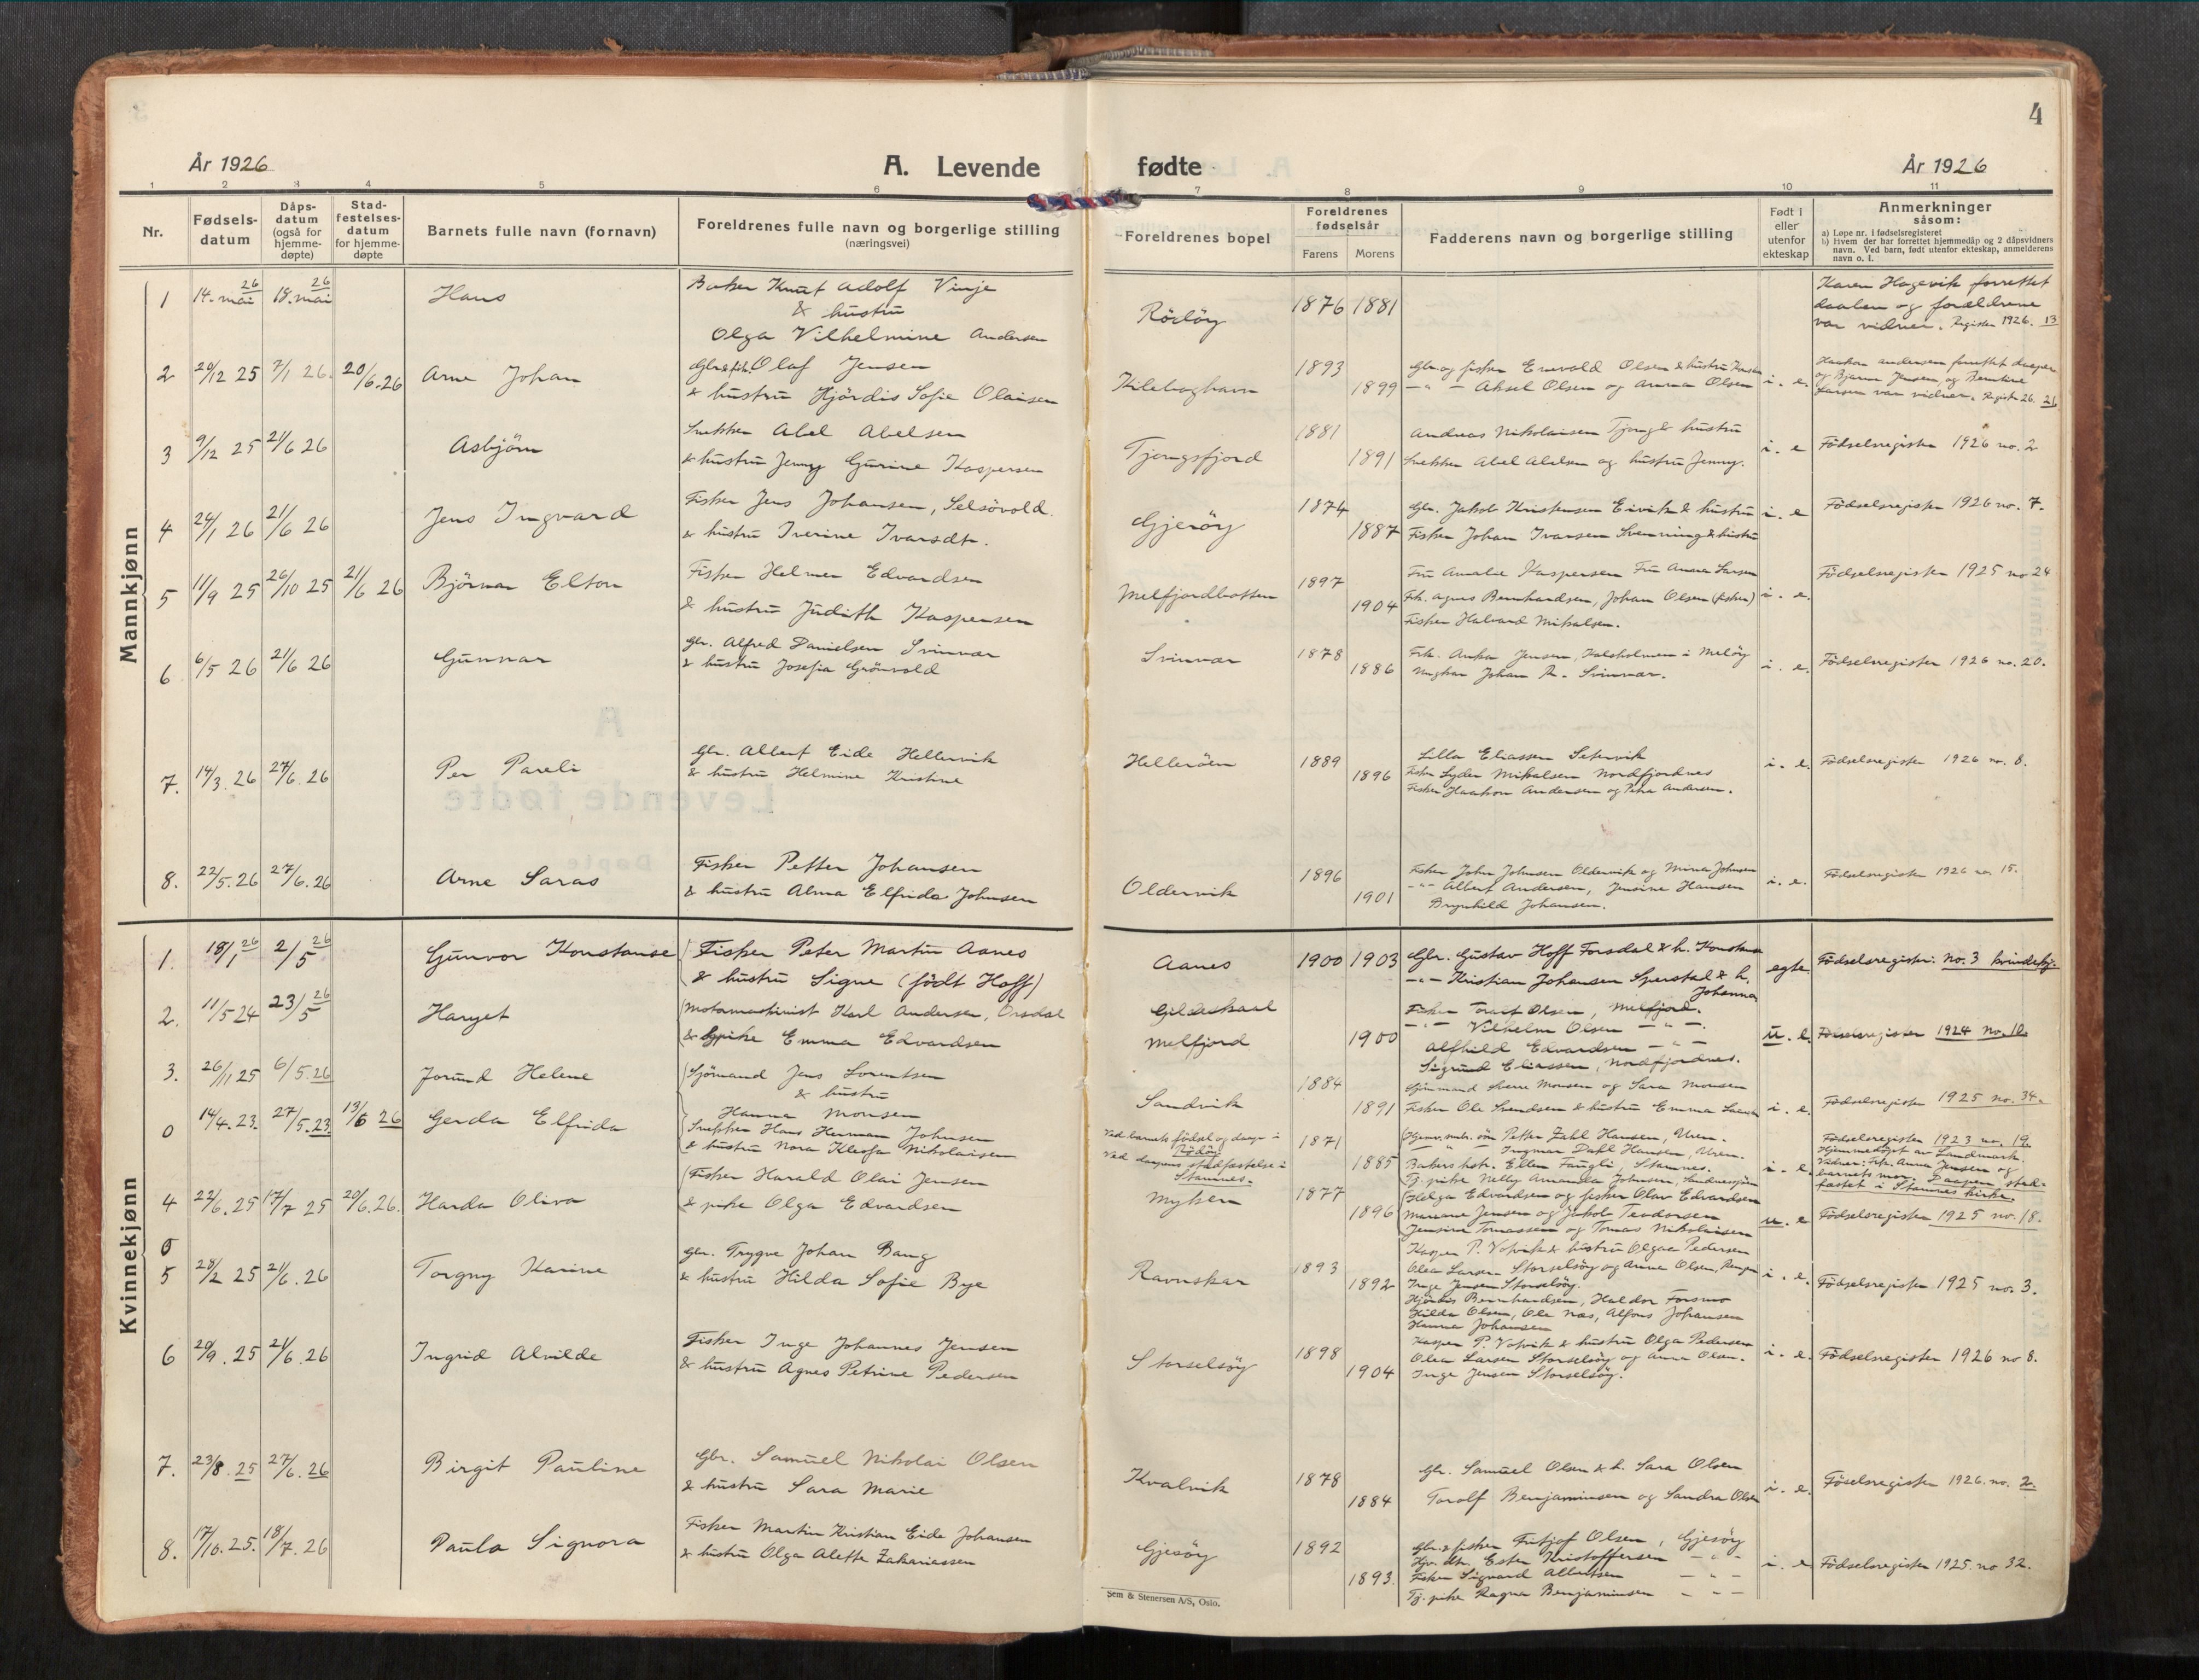 4
År 1926
A. Levende fødte
År 1926
1 2 3 4 5 6 7 8 9 10 11
Nr.
Fødsels-datum
Dåps-datum (også for hjemme-døpte)
Stad-festelses-datum for hjemme-døpte
Barnets fulle navn (fornavn)
Foreldrenes fulle navn og borgerlige stilling (næringsvei)
Foreldrenes bopel
Foreldrenes fødselsår
Farens Morens
Fadderens navn og borgerlige stilling
Født i eller utenfor ekteskap
Anmerkninger såsom:
a) Løpe nr. i fødselsregisteret
b) Hvem der har forrettet hjemmedåp og 2 dåpsvidners navn. Ved barn, født utenfor ekteskap, anmelderens navn o. l.
Mannkjønn
1 14. mai 26 18. mai 26 Hans
Baker Knut Adolf Vinje
& hustru
Olga Vilhelmine Andersen
Rödöy 1876 1881
Karen Hagevik forrettet
daaben og forældrene
var vidner. Register 1926. 13
2 29/12 25 7/1 26. 20/6.26 Arne Johan
Gbr & fisk. Olaf Jensen
& hustru Hjördis Sofie Olaisen
Kilboghavn 1893 1899
Gbr og fisker Envald Olsen & hustru
–"– Aksel Olsen og Anna Olsen i. e.
Haakon Andersen forrettet daapen
og Bjarne Jensen, og
Larsen var vidner. Register 26. 26
3 9/12 25 21/6 26 Asbjörn
Snekker Abel Abelsen
& hustru Jenny Gurine Kaspersen
Tjongsfjord 1881 1891
Andreas Nikolaisen Tjong & hustru
Snekker Abel Abelsen og hustru Jenny. i. e
Födselsregister 1926 no. 2
4 24/1 26 21/6 26 Jens Ingvard
Fisker Jens Johansen, Selsövold.
& hustru Iverine Ivarsdt.
Gjeröy 1874 1887
Gbr. Jakob Kristensen Eivik & hustru i. e
Fisker Johan Ivarsen Svenning & hustru
Födselsregister 1926 no. 7.
5 11/9 25 26/10 25 21/6 26 Björnar Elton
Fisker Helmer Edvardsen
& hustru Judith Kaspersen
Melfjordbotten 1897 1904
Fru Amalie Kaspersen Fru Anna Larsen
Frk. Agnes Bernhardsen, Johan Olsen (fisker) i. e.
Fisker Halvard Mikalsen.
Födselsregister 1925 no 24
6 6/5 26 21/6 26 Gunnar
Gbr. Alfred Danielsen Svinvær
& hustru Josefia Grönvold
Svinvær 1878 1886
Frk. Anka Jensen, Valsholmen i Melöy
Ungkar Johan R. Svinvær. i. e.
Födselsregister 1926 no. 20.
7. 14/3. 26 27/6. 26 Per Pareli
Gbr. Albert Eide Hellervik
& hustru Helmine Kristine
Helleröen 1889 1896
Lilla Eliassen Setervik
Fisker Lyder Mikalsen Nordfjordnes
Fisker Haakon Andersen og Petra Andersen.
i. e. Födselsregister 1926 no. 8.
8. 22/5. 26 27/6. 26 Arne Saras
Fisker Petter Johansen
& hustru Alma Elfrida Johnsen
Oldervik 1896 1901
Fisker John Johnsen Oldervik og Mina Johnsen
–"– Albert Andersen, Jensine Hansen
Brynhild Johansen.
i. e. Födselsregister 1926 no 15.
Kvinnekjønn
1. 18/1 26 2/5 26 Gunvor Konstanse
Fisker Peter Martin Aanes
& hustru Signe (födt Hoff)
Aanes 1900 1903
Gbr. Gustav Hoff Forsdal & h. Konstanse
–"– Kristian Johansen Sperstad & h. Johanna
egte Födselsregister: no. 3 kvindekj.
2. 11/5 24 23/5 26 Haryet
Motormaskinist Karl Andersen, Orsdal
& pike Emma Edvardsen
Gildeskaal
Melfjord 1900
Fisker Toralf Olsen, Melfjord.
–"– Vilhelm Olsen –"–.
Alfhild Edvardsen –"–
Sigrund Eliassen, Nordfjordnes.
u. e. Födselsregister 1924 no. 10
3. 26/11 25 6/5.26 Jorund Helene
Sjömand Jens Lorentsen
& hustru
Hanna Monsen
Sandvik 1884 1891
Sjömand Sverre Monsen og Sara Monsen
Fisker Ole Svendsen & hustru Emma i. e.
Födselsregister 1925 no. 34.
0 14/4. 23. 27/5.23 13/6 26 Gerda Elfrida
Snekker Hans Herman Johnsen
& hustru Nora Kleofa Nikolaisen
Ved barnets födsel og daap i
Rödöy
Ved daapens stadfæstelse i
Stamnes.
1871 1885
Petter Zahl Hansen, Uren.
Ingmar Dahl Hansen, Uren.
Bakers hstr. Ellen Faugli, Stamnes.
Tj. pike Nelly Amanda Johnsen,
i. e. Födselsregister 1923 no. 19.
Hjemmedöpt av Landmark.
Vidner: Frk. Anna Jensen og
barnets mor. Daapen stad-
fæstet i Stamnes kirke.
4 22/6. 25 17/7 25 20/6. 26. Harda Oliva
Fisker Harald Olai Jensen
& pike Olga Edvardsen
Myken 1877 1896
Helga Edvardsen og fisker Olav Edvardsen
Mariane Jensen og Jakob Teodorsen
Jensine Tomassen og Tomas Nikolaisen
u. e Födselsregister 1925 no. 18.
0
5 28/2 25 21/6. 26 Torgny Karine
Gbr. Trygve Johan Bang
& hustru Hilda Sofie Bye
Ravnskar 1893 1892
Kasper P. Valvik & hustru Olga Pedersen
Olea Larsen Storselsöy og Anna Olsen,
Inge Jensen Storselsöy.
Hjördis Bernhardsen, Haldor Forsmo
Hilda Olsen, Ole Næs, Alfons Johansen
Hanna Johansen
i. e. Födselsregister 1925 no. 3.
6 20/9. 25 21/6. 26 Ingrid Alvilde
Fisker Inge Johannes Jensen
& hustru Agnes Petrine Pedersen
Storselsöy 1898 1904
Kasper P. Valvik & hustru Olga Pedersen
Olea Larsen Storselsöy og Anna Olsen.
Inge Jensen Storselsöy.
i. e. Födselsregister 1926 no 8.
7. 23/8. 25 27/6. 26 Birgit Pauline
Gbr. Samuel Nikolai Olsen
& hustru Sara Marie
Kvalvik 1878 1884
Gbr. Samuel Olsen & h. Sara Olsen
Torolf Benjaminsen og Sandra Olsen
i. e. Föselsregister 1926. no. 2.
8. 17/10. 25. 18/7. 26 Paula Signora
Fisker Martin Kristian Eide Johansen
& hustru Olga Alette Zakariassen
Gjesöy 1892 1893.
Gbr. & fisker Fritjof Olsen, Gjesöy
Gbr. dtr. Ester Kristoffersen –"–
Fisker Sigvard Albertsen –"–
Tj. pike Ragna Benjaminsen –"–
i. e Födselsregister 1925. no 32.
Sem & Stenersen A/S, Oslo.